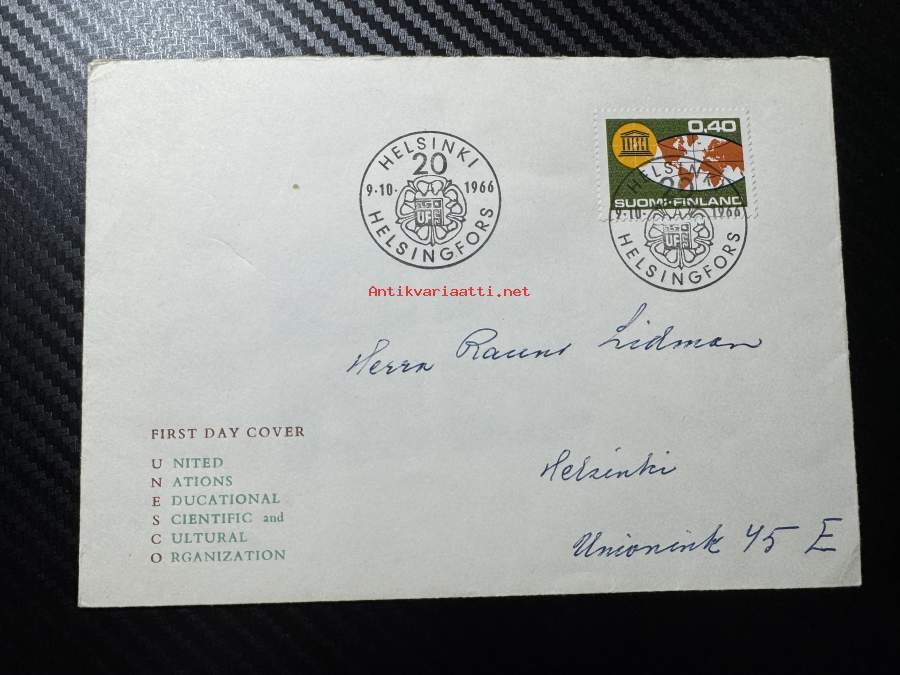 0,40
SUOMI-FINLAND
HELSINKI
20
9-10- 1966
UFF
HELSINGFORS
HELSINKI
20
9-10- 1966
UFF
HELSINGFORS
Antikvariaatti.net
Herra Rauno Lidman
FIRST DAY COVER
UNITED
NATIONS
EDUCATIONAL
SCIENTIFIC and
CULTURAL
ORGANIZATION
Helsinki
Unionink 45 E